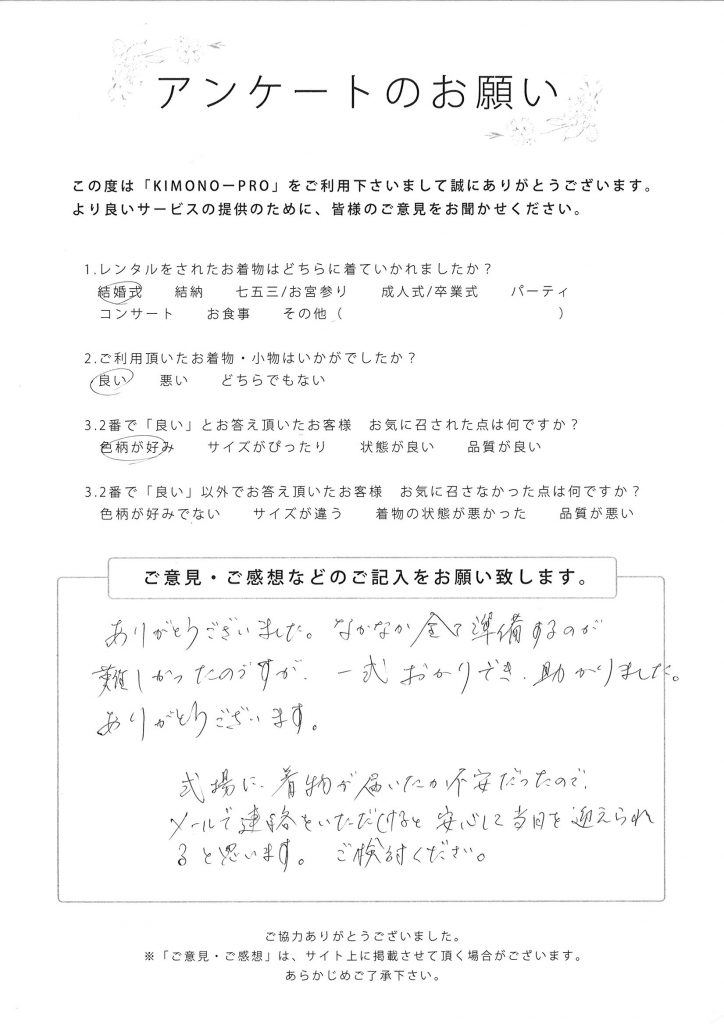 アンケートのお願い
この度は「KIMONO－PRO」をご利用下さいまして誠にありがとうございます。
より良いサービスの提供のために、皆様のご意見をお聞かせください。
1.レンタルをされたお着物はどちらに着ていかれましたか？
結婚式　結納　七五三/お宮参り　成人式/卒業式　パーティ
コンサート　お食事　その他（　　　　　　　　　　　　）
2.ご利用頂いたお着物・小物はいかがでしたか？
良い　悪い　どちらでもない
3.2番で「良い」とお答え頂いたお客様　お気に召された点は何ですか？
色柄が好み　サイズがぴったり　状態が良い　品質が良い
3.2番で「良い」以外でお答え頂いたお客様　お気に召さなかった点は何ですか？
色柄が好みでない　サイズが違う　着物の状態が悪かった　品質が悪い
ご意見・ご感想などのご記入をお願い致します。
ありがとうございました。なかなか全て準備するのが
難しかったのですが、一式おかりでき、助かりました。
ありがとうございます。
式場に、着物が届いたか不安だったので、
メールで連絡をいただけると安心して当日を迎えられ
ると思います。ご検討ください。
ご協力ありがとうございました。
※「ご意見・ご感想」は、サイト上に掲載させて頂く場合がございます。
あらかじめご了承下さい。